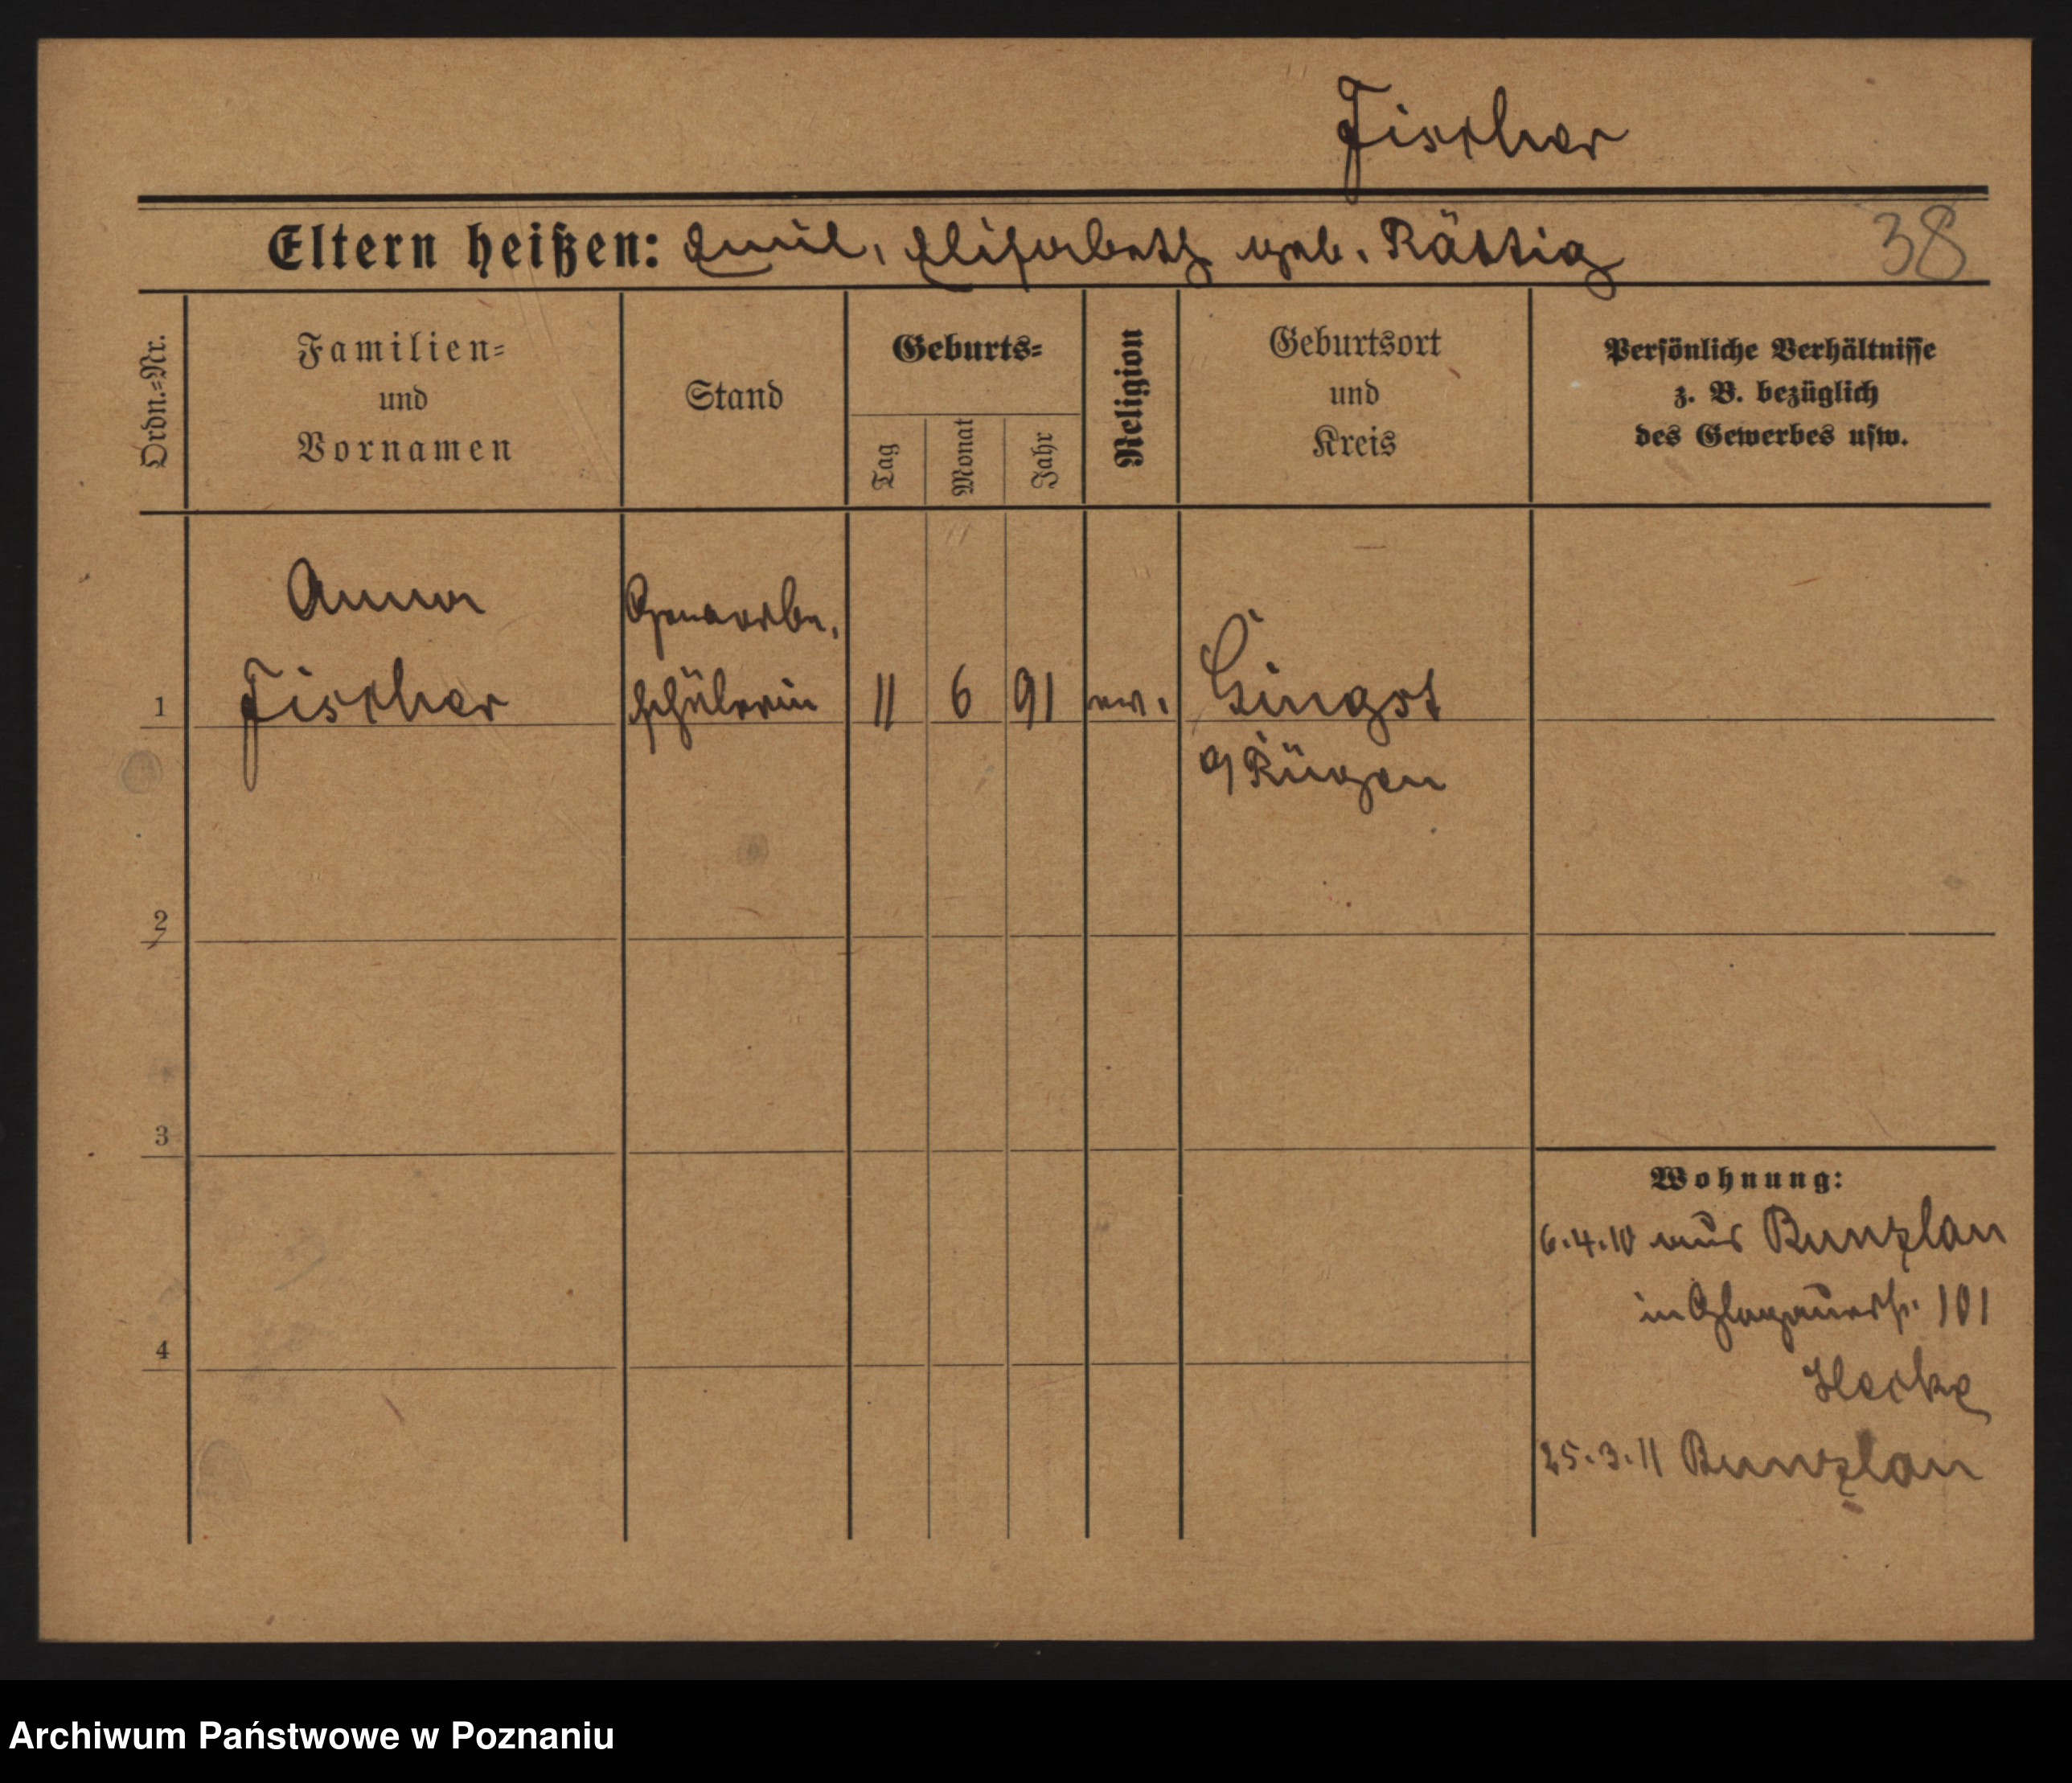 Fischer
Eltern heißen: Emil, Elisabeth geb. Rättig
38
Ordn.=Nr.
Familien=
und
Vornamen
Stand
Geburts=
Tag
Monat
Jahr
Religion
Geburtsort
und
Kreis
Persönliche Verhältnisse
z. B. bezüglich
des Gewerbes usw.
Anna
Fischer
Gewerbe,
schülerin
1
11 6 91 ev.
Gingst
a/Rügen
2
3
4
Wohnung:
6.4.10 aus Bunzlau
in Glogauerstr. 101
25.3.11 Bunzlau
Archiwum Państwowe w Poznaniu